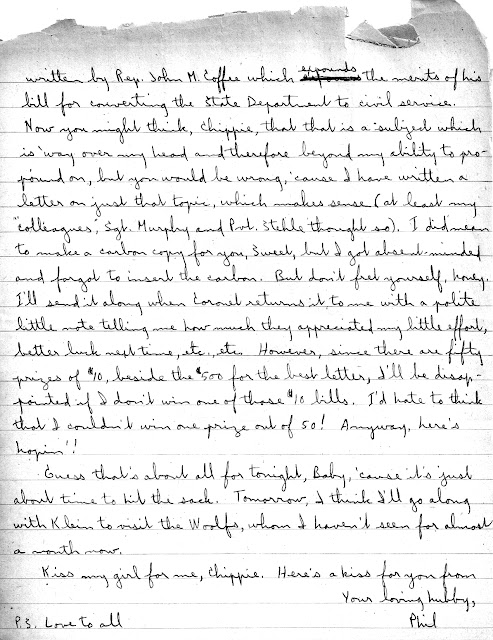 written by Rep. John M. Coffee which expounds the merits of his
bill for converting the State Department to civil service.
Now you might think, Chippie, that that is a subject which
is 'way over my head and therefore beyond my ability to pro-
pound on, but you would be wrong, 'cause I have written a
letter on just that topic, which makes sense (at least my
"colleagues", Sgt. Murphy and Pvt. Stelle thought so). I did mean
to make a carbon copy for you, Sweet, but I got absent-minded
and forgot to insert the carbon. But don't fret yourself, honey.
I'll send it along when Coronet returns it to me with a polite
little note telling me how much they appreciated my little effort,
better luck next time, etc., etc. However, since there are fifty
prizes of $10, beside the $500 for the best letter, I'll be disap-
pointed if I don't win one of those $10 bills. I'd hate to think
that I couldn't win one prize out of 50! Anyway, here's
hopin'!
Guess that's about all for tonight, Baby, 'cause it's just
about time to hit the sack. Tomorrow, I think I'll go along
with Klein to visit the Woolfs, whom I haven't seen for almost
a month now.
Kiss my girl for me, Chippie. Here's a kiss for you from
Your loving hubby,
P.S. Love to all Phil